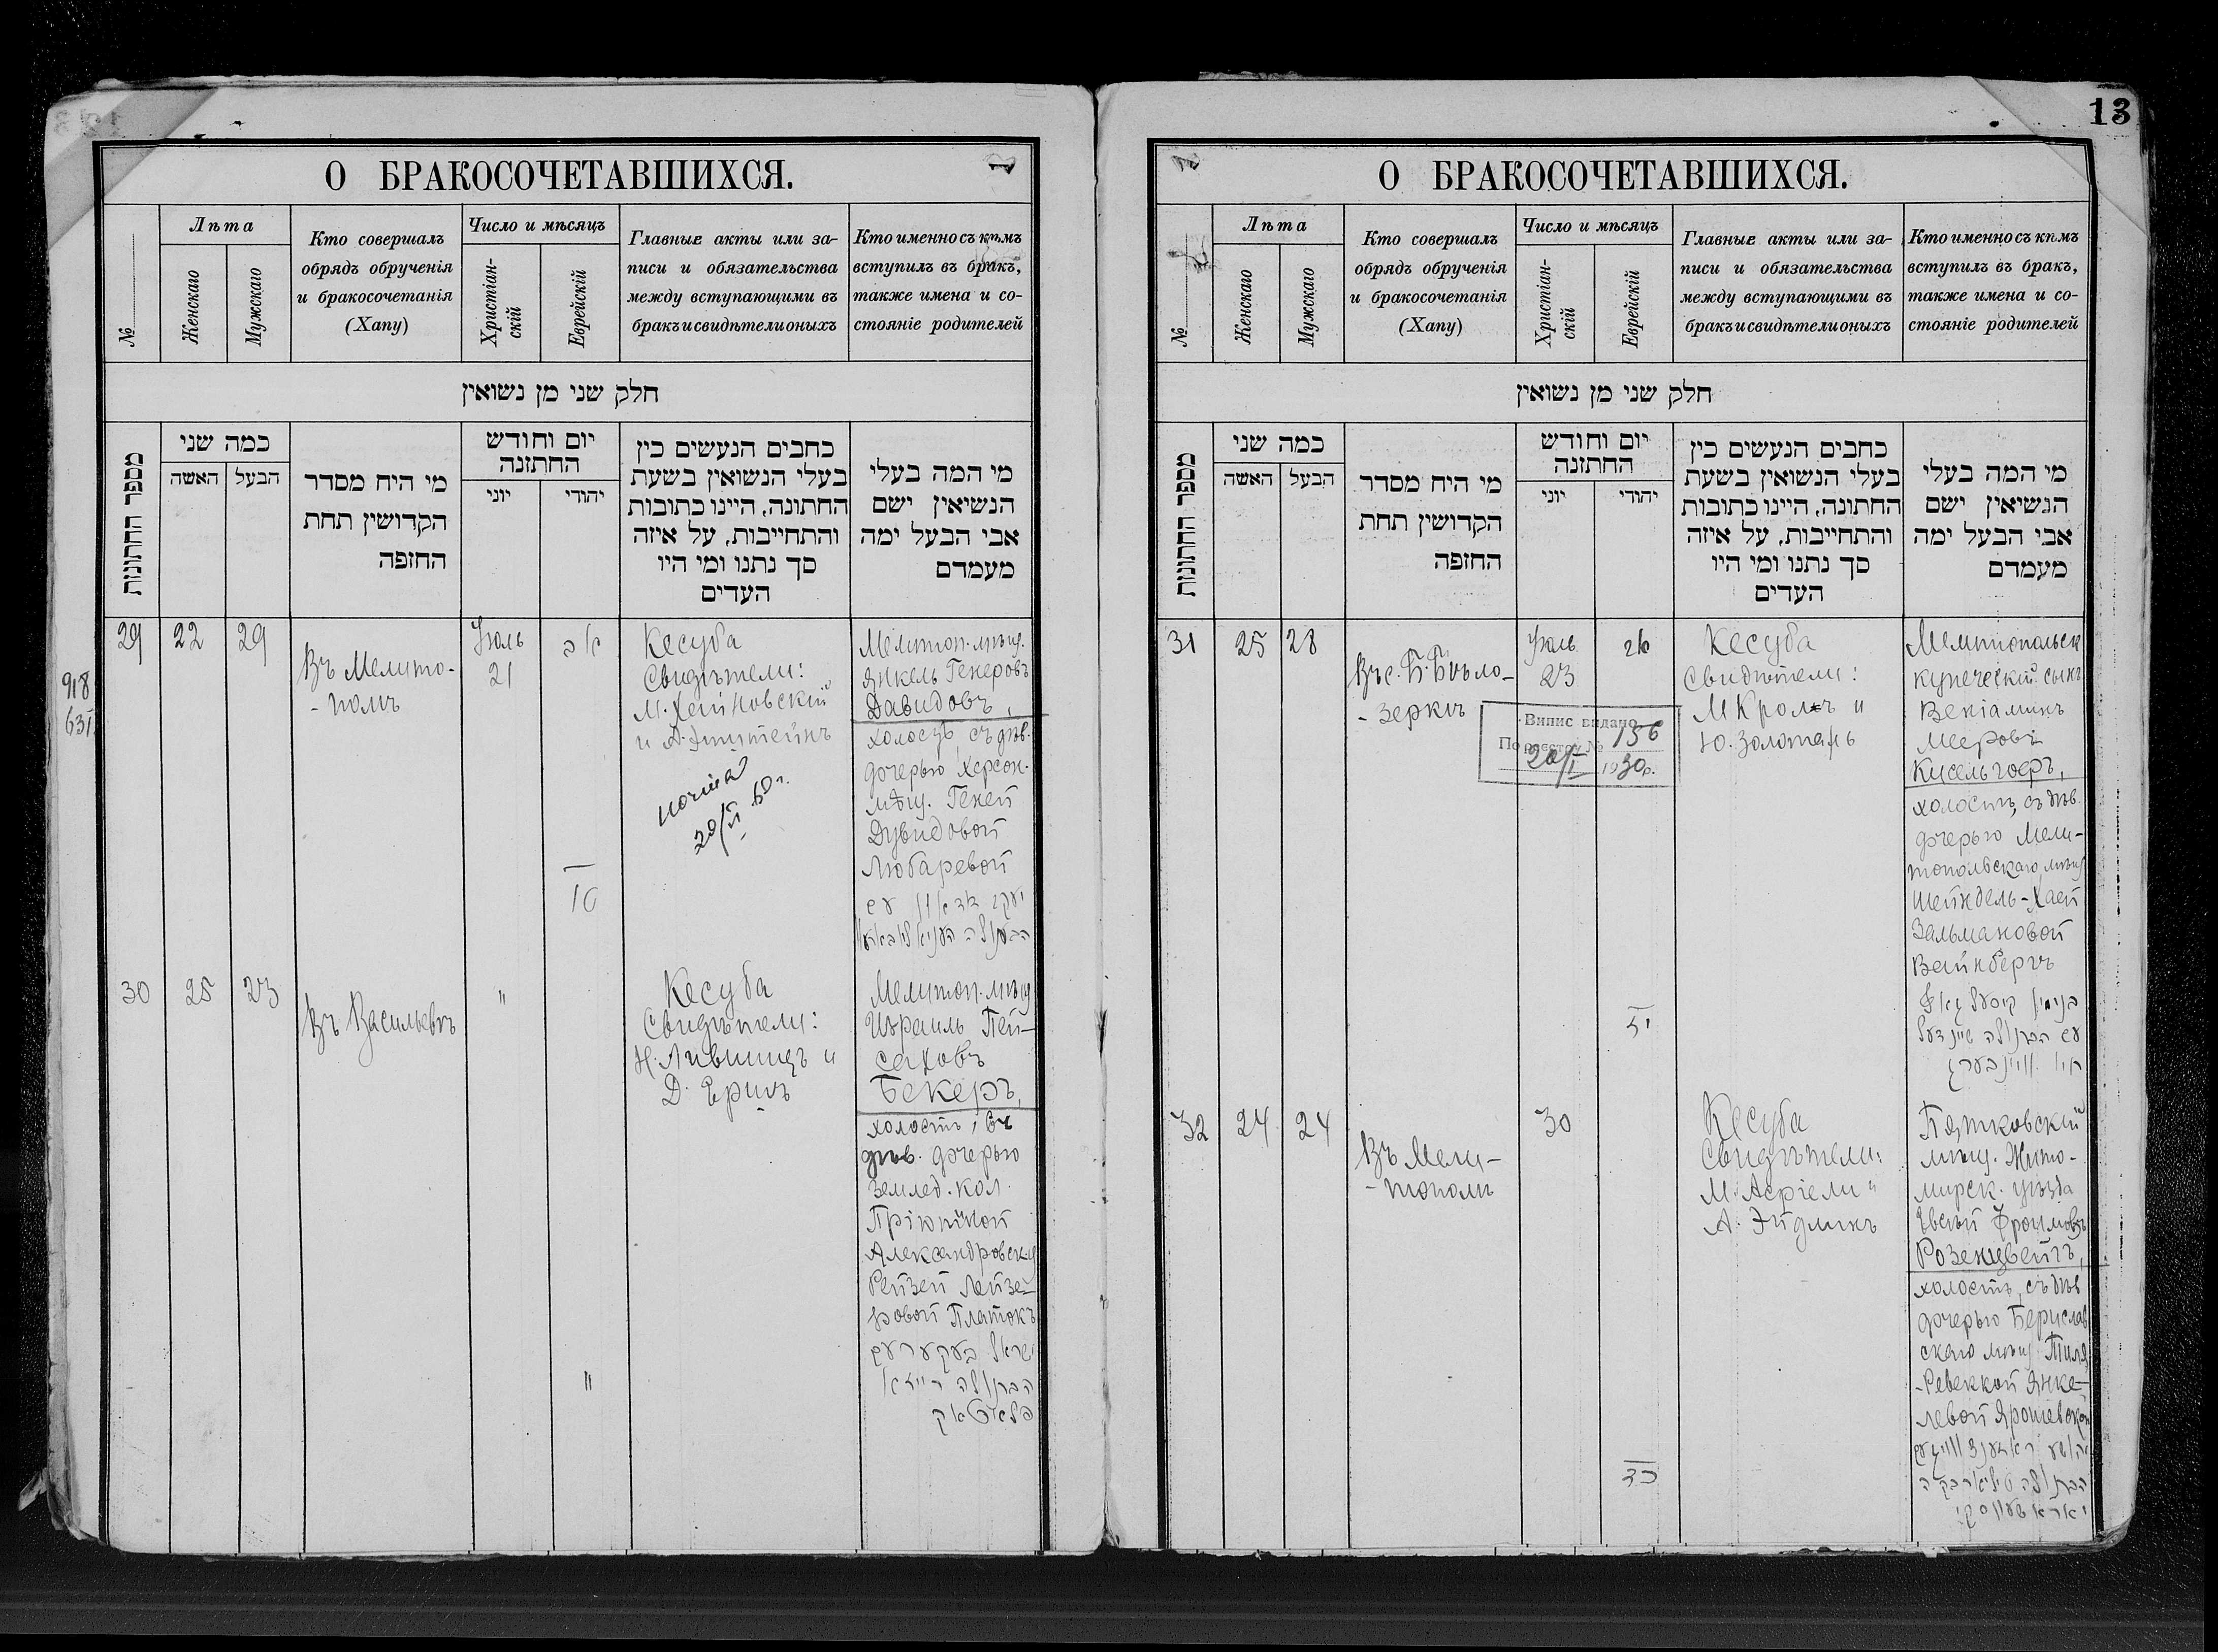 13
О БРАКОСОЧЕТАВШИХСЯ.
№
Лѣта
Женскаго
Мужскаго
Кто совершалъ
обрядъ обрученія
и бракосочетанія
(Хапу)
Число и мѣсяцъ
Христіан-
скій
Еврейскій
Главные акты или за-
писи и обязательства
между вступающими въ
бракъ и свидѣтели оныхъ
Кто именно съ кѣмъ
вступилъ въ бракъ,
также имена и со-
стояніе родителей
חלק שני מן נשואין
מספר החתונות
כמה שני
האשה
הבעל
מי היח מסדר
הקדושין תחת
החזפה
יום וחודש
החתזנה
יוני
יהודי
כחבים הנעשים כין
בעלי הנשואין בשעת
החתונה, היינו כתובות
והתחייבות, על איזה
סך נתנו ומי היו
העדים
מי המה בעלי
הנשיאין ישם
אבי הבעל ימה
מעמדם
918
631
29
22
29
Въ Мелито-
-полѣ
Іюль
21
אב
10
Кесуба
Свидѣтели:
М. Хейновскій
и А. Эпштейнъ
20/VI 60 г.
Мелитоп. мѣщ.
Янкель Генеровъ
Давидовъ,
холостъ, съ дѣв.
дочерью Херсон.
мѣщ. Геней
Дувидовой
Любаревой
30
25
23
Въ Васильевкѣ
"
"
Кесуба
Свидѣтели:
Н. Лившицъ и
Д. Ерилъ
Мелитоп. мѣщ
Израиль Пей-
саховъ
Бекеръ,
холостъ, съ
дѣв. дочерью
землед. кол.
Александровск. у
Рейзей Лейзе-
ровой Платокъ
הבתולה רייזא
פלאטאק
О БРАКОСОЧЕТАВШИХСЯ.
№
Лѣта
Женскаго
Мужскаго
Кто совершалъ
обрядъ обрученія
и бракосочетанія
(Хапу)
Число и мѣсяцъ
Христіан-
скій
Еврейскій
Главные акты или за-
писи и обязательства
между вступающими въ
бракъ и свидѣтели оныхъ
Кто именно съ кѣмъ
вступилъ въ бракъ,
также имена и со-
стояніе родителей
חלק שני מן נשואין
מספר החתונות
כמה שני
האשה
הבעל
מי היח מסדר
הקדושין תחת
החזפה
יום וחודש
החתזנה
יוני
יהודי
כחבים הנעשים כין
בעלי הנשואין בשעת
החתונה, היינו כתובות
והתחייבות, על איזה
סך נתנו ומי היו
העדים
מי המה בעלי
הנשיאין ישם
אבי הבעל ימה
מעמדם
31
25
28
Въ с. Б. Бѣло-
-зеркѣ
Іюль
23
אב
יד
Випис видано
По реестру № 156
20/I 1930 р.
Кесуба
Свидѣтели:
М Кролъ и
Ю. Золотарь
Мелитопольск
купеческій сынъ
Веніаминъ
Мееровъ
Кисельгоеръ,
холостъ, съ дѣв.
дочерью Мели-
топольскаго мѣщ
Шейндель-Хаей
Зальмановой
Вайнбергъ
32
24
24
Въ Мели-
-тополѣ
30
כד
Кесуба
Свидѣтели:
М. Асріели и
А. Эйдлинъ
Пятковскій
мѣщ. Жито-
мирск. уѣзда
Евсей Фроимовъ
Розенцвейгъ,
холостъ, съ дѣв
дочерью Берислав
скаго мѣщ Тиля
-Ревеккой Янке-
левой Ярошевской